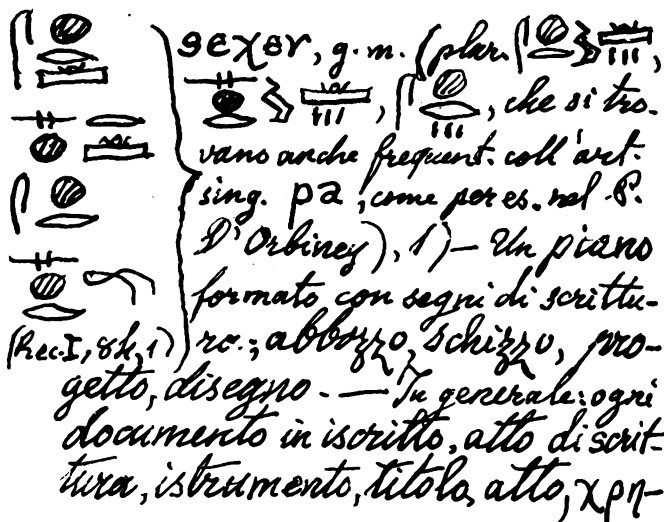 seχer, g. m. (plur.
, , che si tro-
vano anche frequent. coll'art.
sing. pa, come per es. nel P.
D'Orbiney), 1) — Un piano
formato con segni di scrittu-
(Rec. I, 1) ra.; abbozzo, schizzo, pro-
getto, disegno. — In generale: ogni
documento in iscritto, atto di scrit-
tura, istrumento, titolo, atto, χρη-